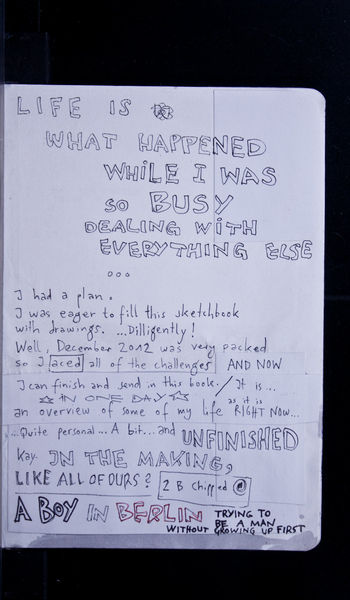 LIFE IS
WHAT HAPPENED
WHILE I WAS
SO BUSY
DEALING WITH
EVERYTHING ELSE
...
I had a plan.
I was eager to fill this sketchbook
with drawings. ...Dilligently!
Well, December 2012 was very packed
so I aced all of the challenges AND NOW
I can finish and send in this book. / It is...
☆ IN ONE DAY ☆ as it is
an overview of some of my life RIGHT NOW...
...Quite personal... A bit... and UNFINISHED
Kay. IN THE MAKING,
LIKE ALL OF OURS? 2 B Chipped @
A BOY IN BERLIN TRYING TO
BE A MAN
WITHOUT GROWING UP FIRST